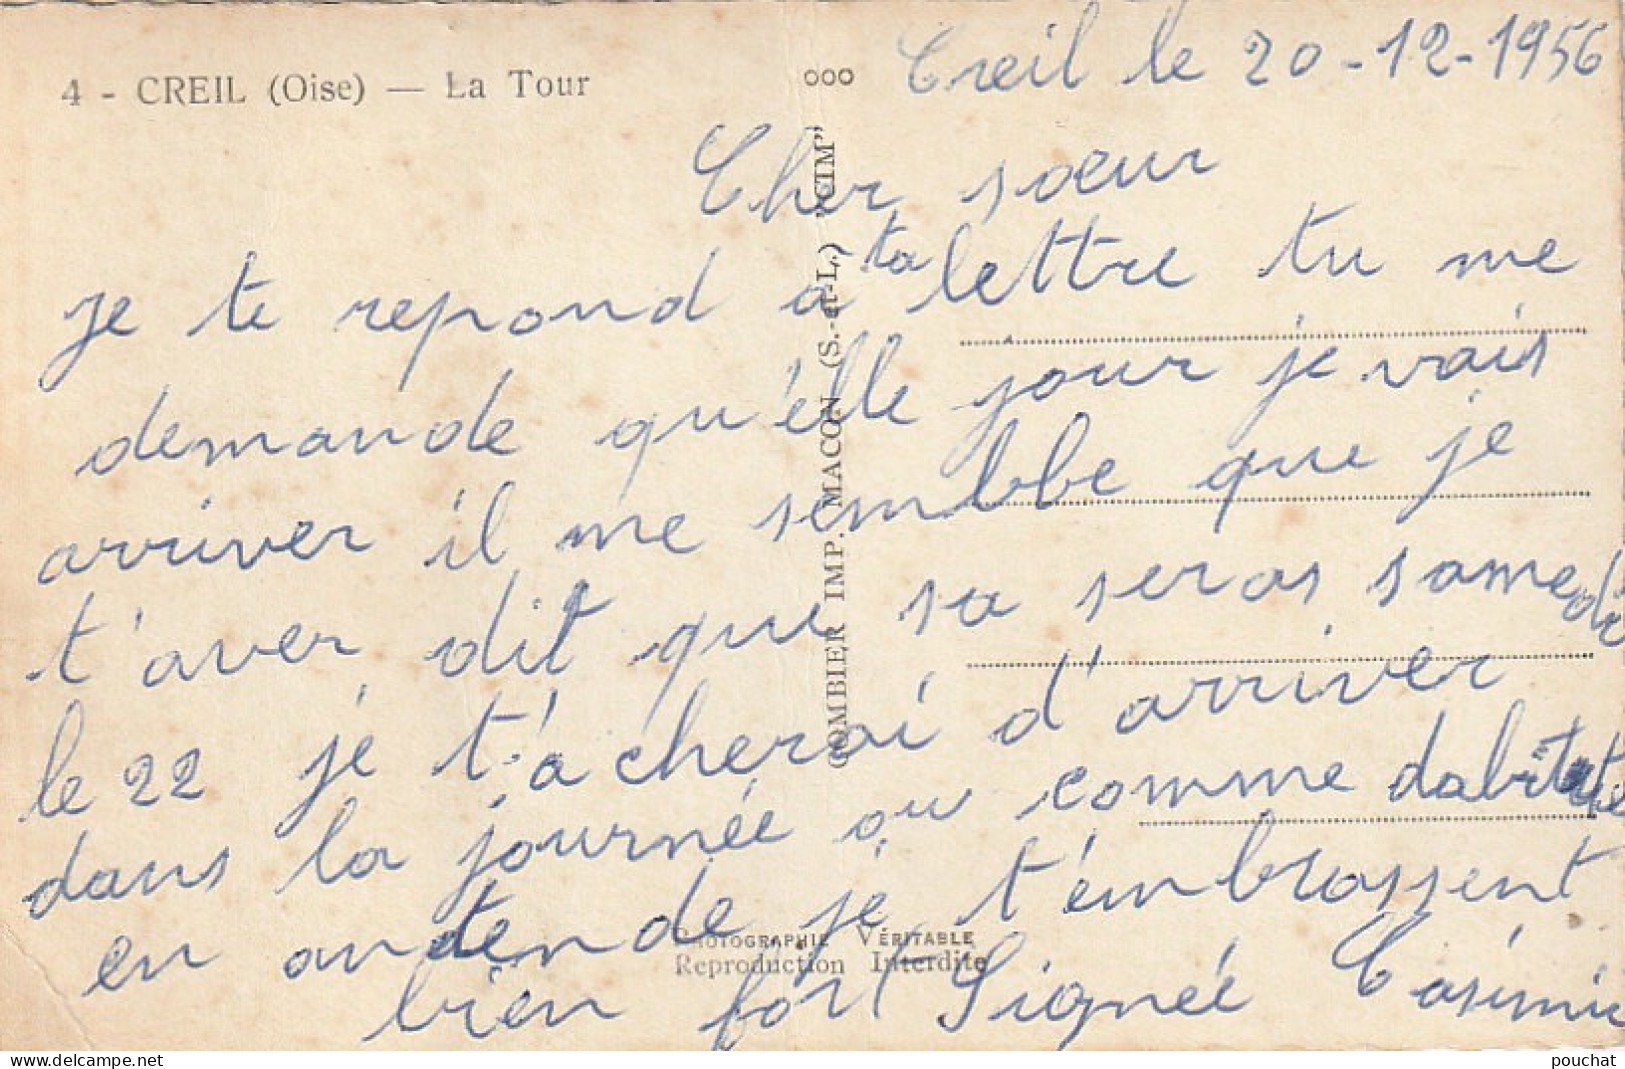 4 - CREIL (Oise) — La Tour
ooo
Creil le 20-12-1956
Cher sœur
je te repond a ta lettre tu me
demande qu'élle jour je vais
arriver il me sembbe que je
t'aver dit que sa seras samedi
le 22 je t'acherai d'arriver
dans la journée ou comme dabitute
en andende je t'embrassent
bien fort Signée Casimir
COMBIER IMP. MACON (S.-et-L.) "CIM"
PHOTOGRAPHIE VÉRITABLE
Reproduction Interdite
pouchat